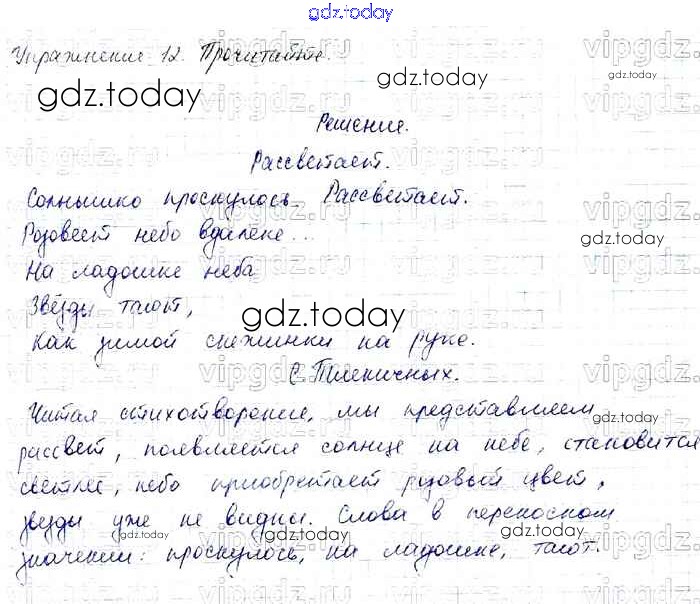 gdz.today
Упражнение 12. Прочитайте.
gdz.today
gdz.today
Решение.
Рассветает.
Солнышко проснулось. Рассветает.
gdz.today
Розовеет небо вдалеке...
gdz.today
На ладошке неба
Звёзды тают,
gdz.today
Как зимой снежинки на руке.
С. Пшеничных.
Читая стихотворение, мы представляем
gdz.today
рассвет, появляется солнце на небе, становится
gdz.today
светлее, небо приобретает розовый цвет,
звёзды уже не видны. Слова в переносном
gdz.today
gdz.today
gdz.today
значении: проснулось, на ладошке, тают.